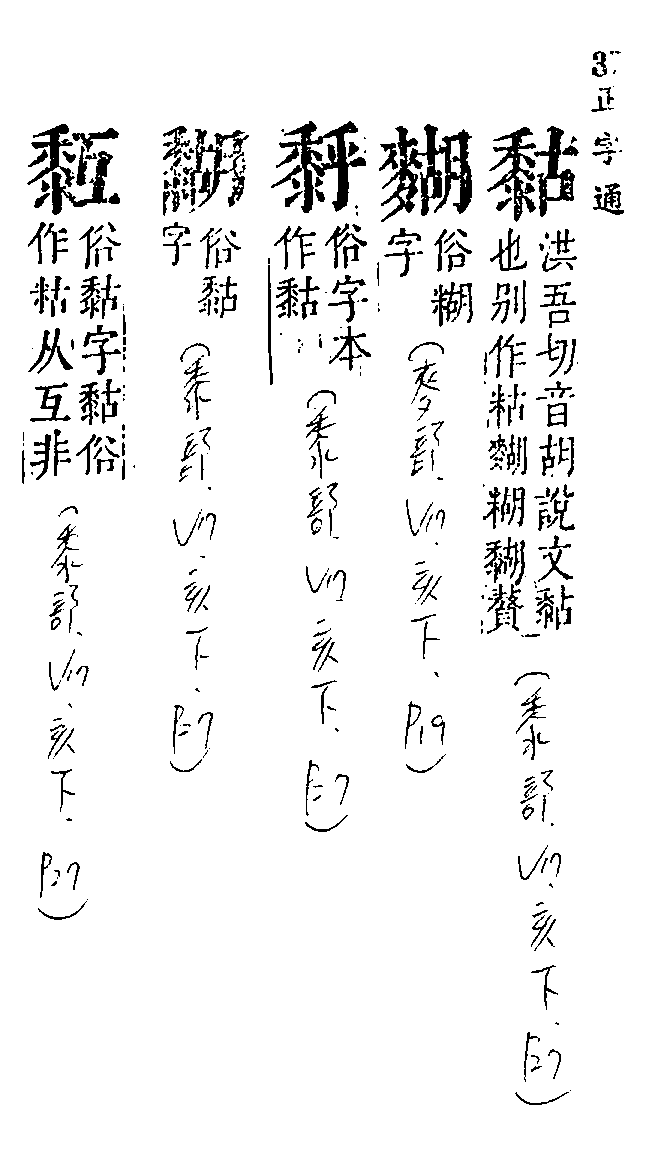 3
正字通
𪏻
洪吾切音胡說文黏
也别作粘糊贅
(黍部、V17、亥下、P27)
俗糊
字
(麥部、V17、亥下、P19)
俗字本
作𪏻
(黍部、V17、亥下、P27)
俗𪏻
字
(黍部、V17、亥下、P27)
俗𪏻字𪏻俗
作粘从互非
(黍部、V17、亥下、P27)